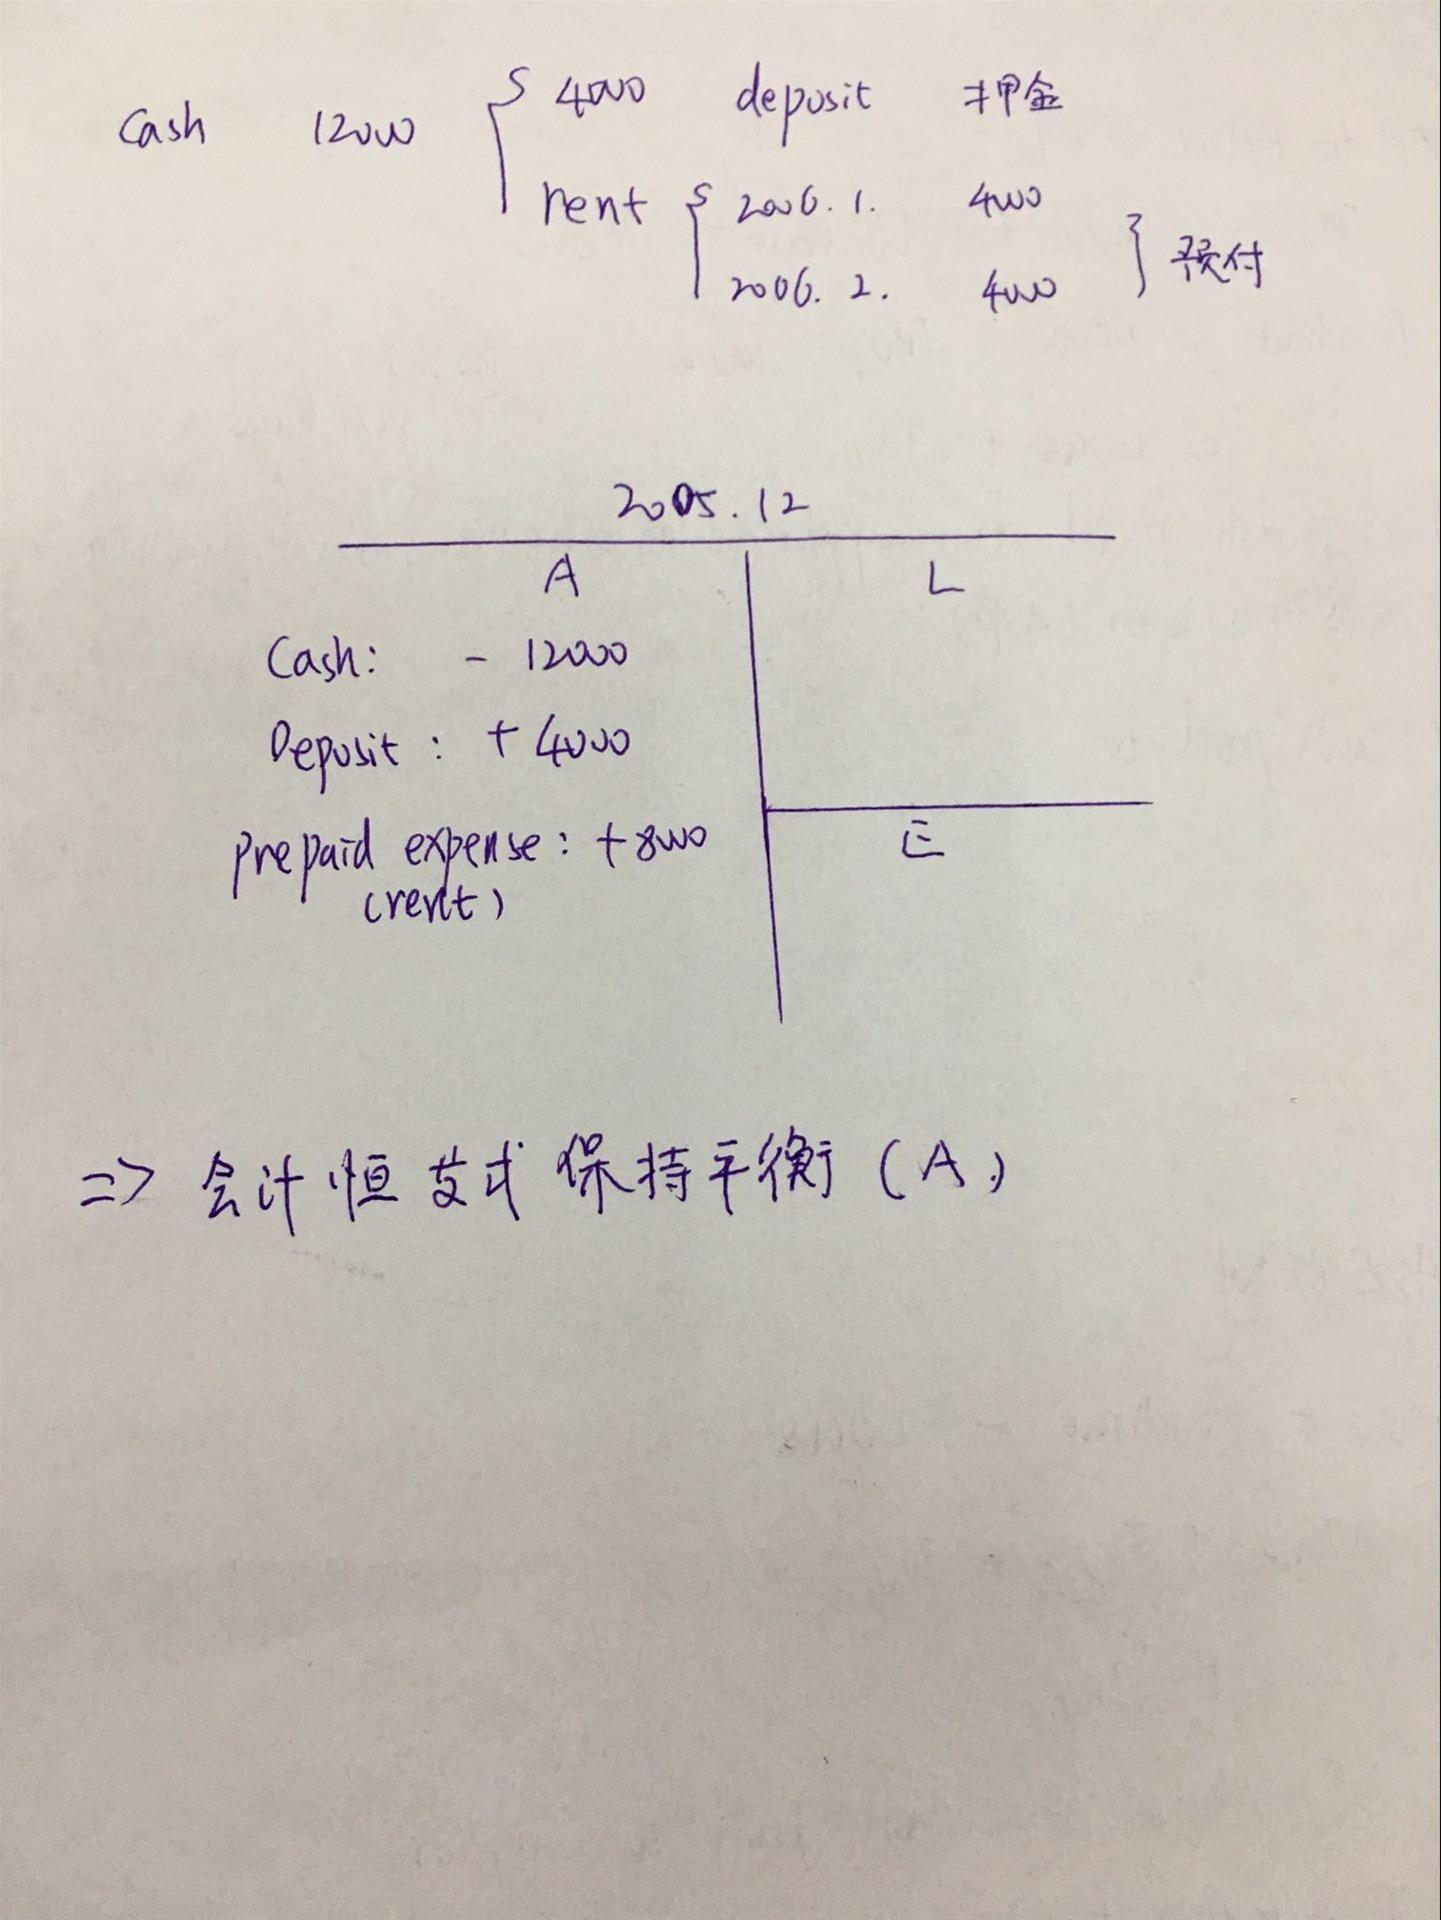 Cash 12000 { 4000 deposit 押金
rent { 2006.1. 4000
2006.2. 4000 } 预付
2005.12
A L
Cash: - 12000
Deposit: + 4000
E
prepaid expense: +8000
(rent)
=> 会计恒等式保持平衡(A)